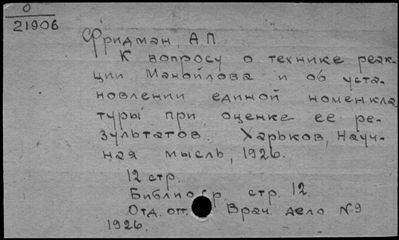 0
21906
Фридман, А.П.
К вопросу о технике реак-
ции Манойлова и об уста-
новлении единой номенкла
туры при оценке ее ре-
зультатов. Харьков, Науч-
ная мысль, 1926.
12 стр.
Библиогр стр. 12
Отд. отт. Врач. дело №9
1926.